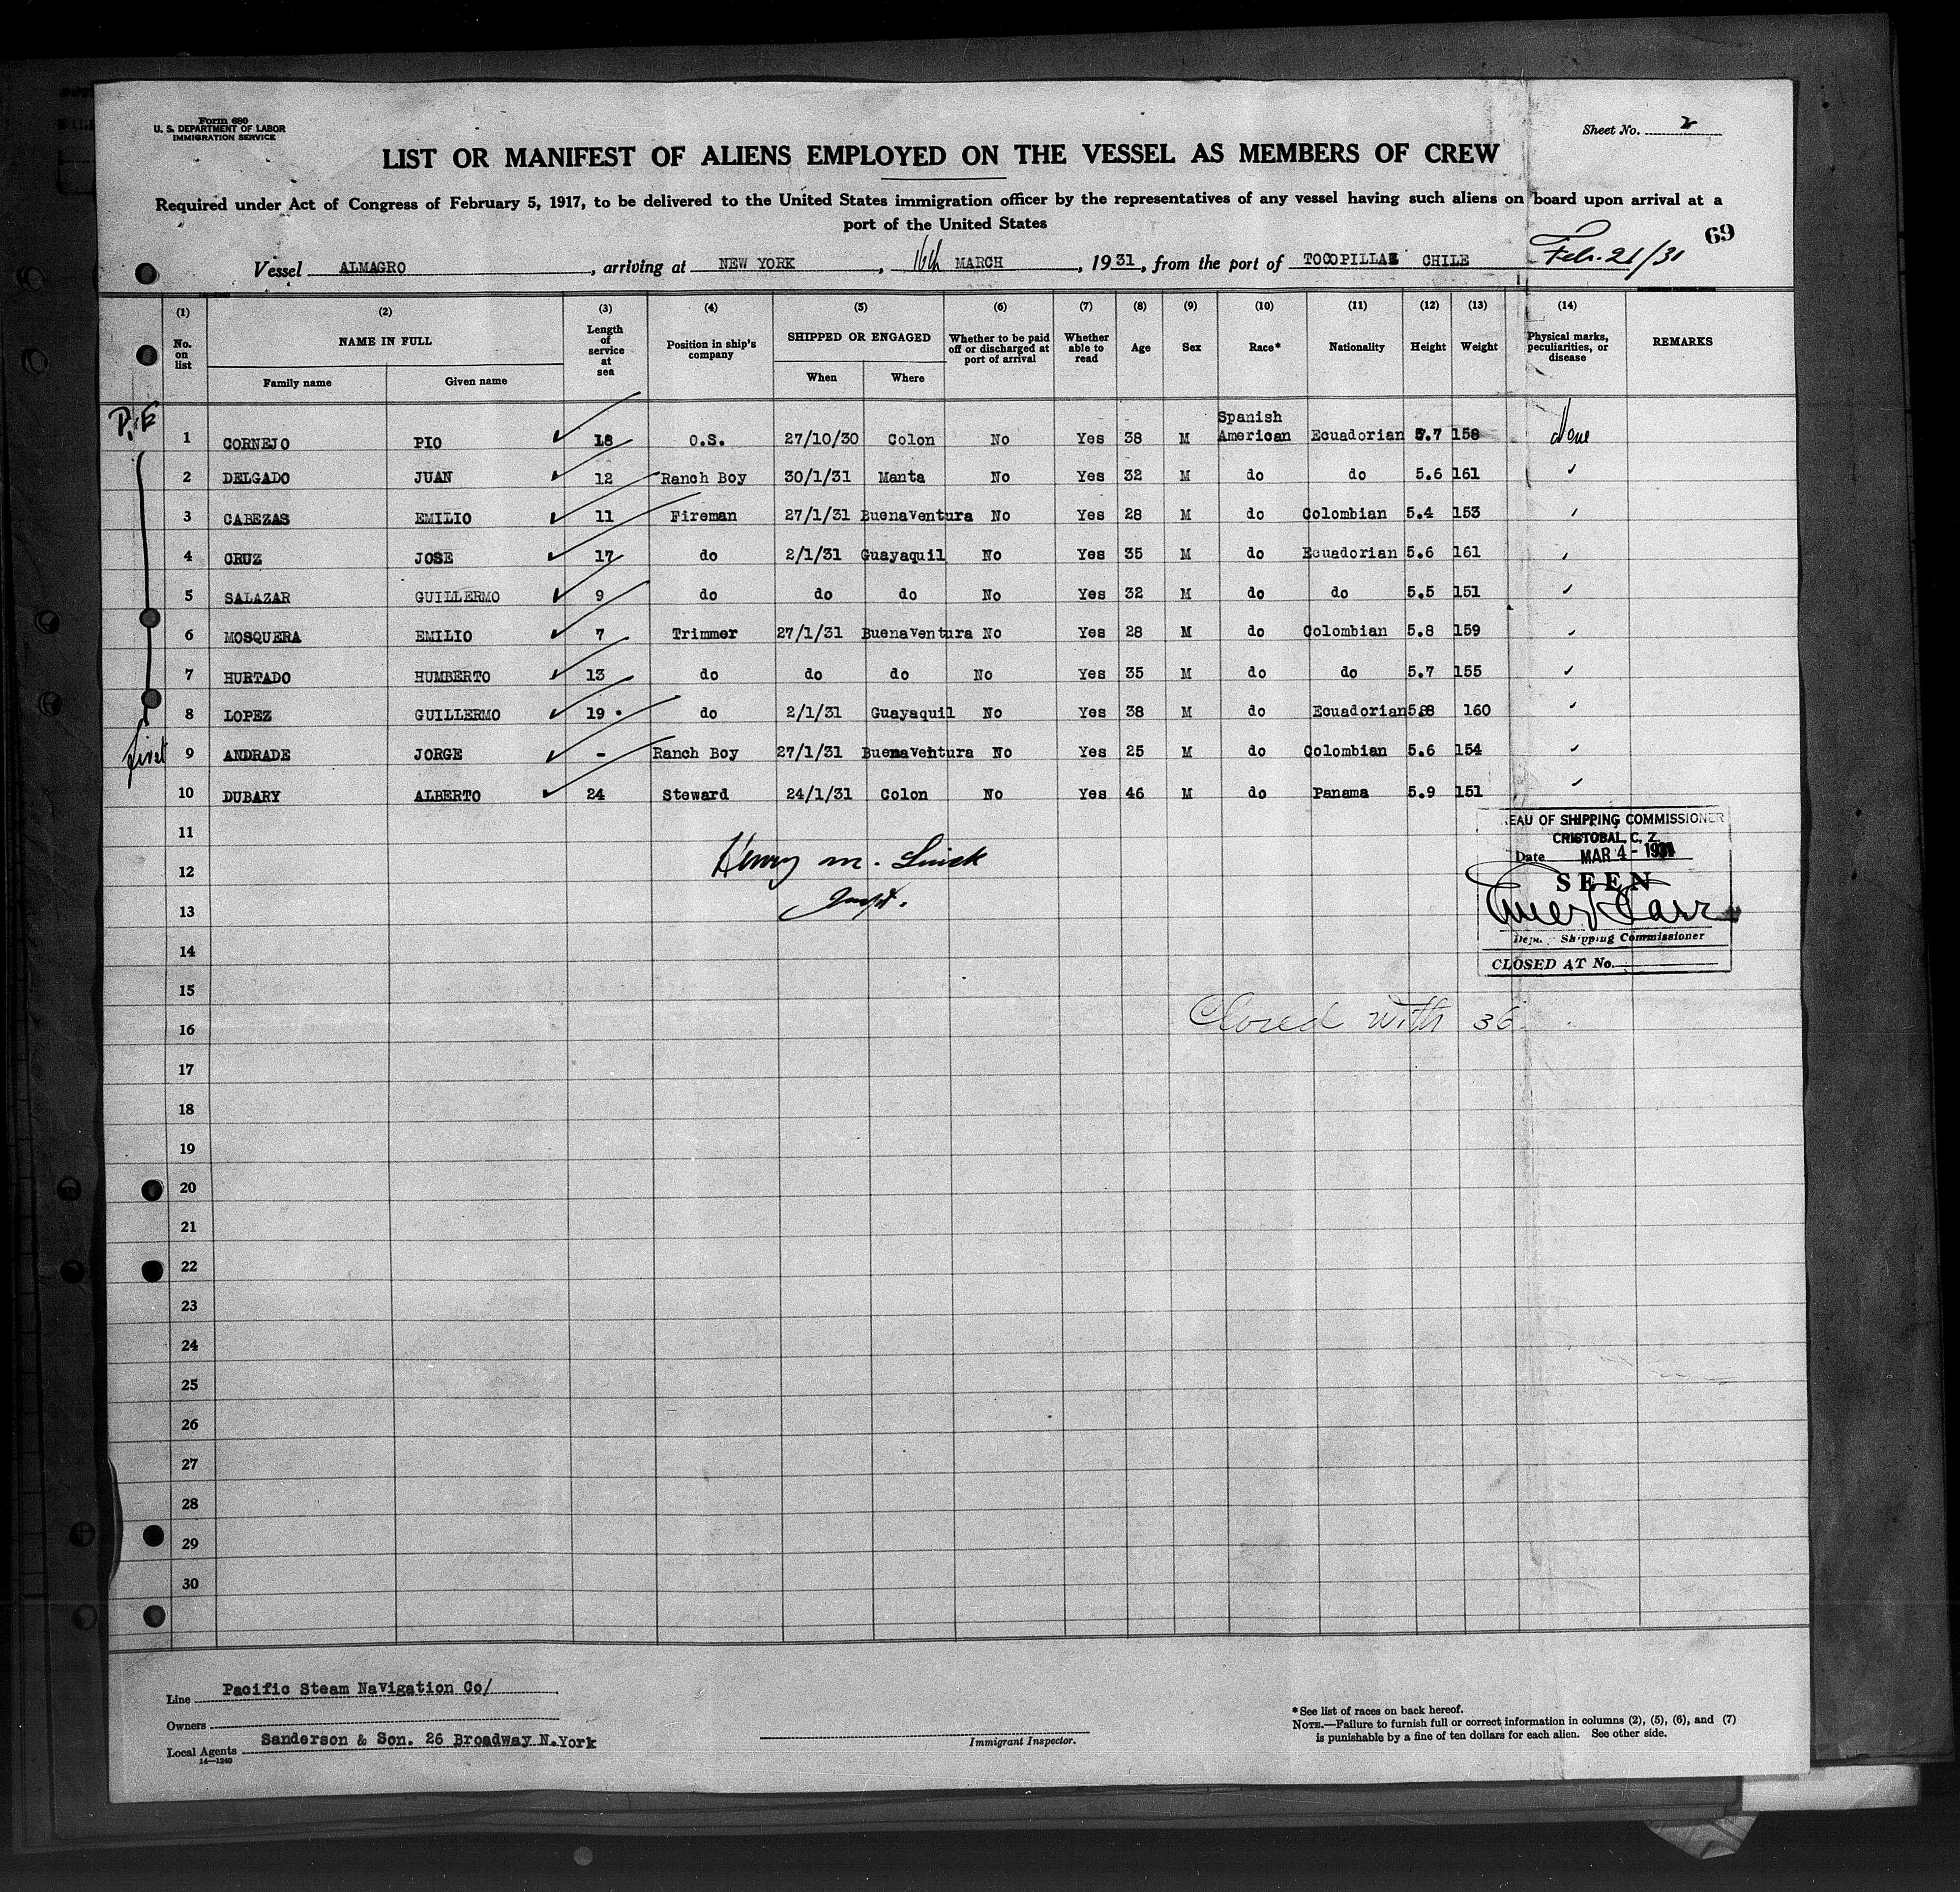 Form 680
U. S. DEPARTMENT OF LABOR
IMMIGRATION SERVICE
Sheet No. 2
LIST OR MANIFEST OF ALIENS EMPLOYED ON THE VESSEL AS MEMBERS OF CREW
Required under Act of Congress of February 5, 1917, to be delivered to the United States immigration officer by the representatives of any vessel having such aliens on board upon arrival at a
port of the United States
69
Vessel ALMAGRO, arriving at NEW YORK, 16th MARCH, 1931, from the port of TOCOPILLA CHILE Feb. 21/31
(1) (2) (3) (4) (5) (6) (7) (8) (9) (10) (11) (12) (13) (14)
No. on list NAME IN FULL Length of service at sea Position in ship's company SHIPPED OR ENGAGED Whether to be paid off or discharged at port of arrival Whether able to read Age Sex Race* Nationality Height Weight Physical marks, peculiarities, or disease REMARKS
Family name Given name When Where
P.E
1 CORNEJO PIO 18 O.S. 27/10/30 Colon No Yes 38 M Spanish American Ecuadorian 5.7 158 None
2 DELGADO JUAN 12 Ranch Boy 30/1/31 Manta No Yes 32 M do do 5.6 161 ✓
3 CABEZAS EMILIO 11 Fireman 27/1/31 Buenaventura No Yes 28 M do Colombian 5.4 153 ✓
4 CRUZ JOSE 17 do 2/1/31 Guayaquil No Yes 35 M do Ecuadorian 5.6 161 ✓
5 SALAZAR GUILLERMO 9 do do do No Yes 32 M do do 5.5 151 ✓
6 MOSQUERA EMILIO 7 Trimmer 27/1/31 Buenaventura No Yes 28 M do Colombian 5.8 159 ✓
7 HURTADO HUMBERTO 13 do do do No Yes 35 M do do 5.7 155 ✓
8 LOPEZ GUILLERMO 19 do 2/1/31 Guayaquil No Yes 38 M do Ecuadorian 5.8 160 ✓
first 9 ANDRADE JORGE - Ranch Boy 27/1/31 Buenaventura No Yes 25 M do Colombian 5.6 154 ✓
10 DUBARY ALBERTO 24 Steward 24/1/31 Colon No Yes 46 M do Panama 5.9 151 ✓
11
12
13
14
15
16
17
18
19
20
21
22
23
24
25
26
27
28
29
30
Henry M.
Inspt.
EAU OF SHIPPING COMMISSIONER
CRISTOBAL, C. Z.
Date MAR 4 - 1931
SEEN
Depu. Shipping Commissioner
CLOSED AT No.
Closed with 36
Line Pacific Steam Navigation Co/
Owners
Local Agents Sanderson & Son. 26 Broadway N.York
14—1240
Immigrant Inspector.
*See list of races on back hereof.
NOTE.—Failure to furnish full or correct information in columns (2), (5), (6), and (7)
is punishable by a fine of ten dollars for each alien. See other side.